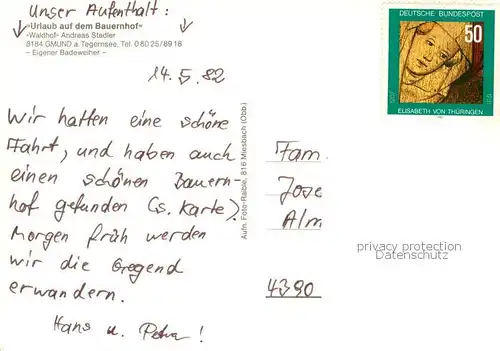 Unser Aufenthalt:
"Urlaub auf dem Bauernhof"
"Waldhof" Andreas Stadler
8184 GMUND a. Tegernsee, Tel. 0 60 25/89 18
– Eigener Badeweiher –
14.5.82
Wir hatten eine schöne
Fahrt, und haben auch
einen schönen Bauern-
hof gefunden (s. Karte).
Morgen früh werden
wir die Gegend
erwandern.
Hans u. Petra!
Aufn. Foto-Raible, 816 Miesbach (Obb.)
DEUTSCHE BUNDESPOST
50
ELISABETH VON THÜRINGEN
Fam.
Jose
Alm
4390
privacy protection
Datenschutz